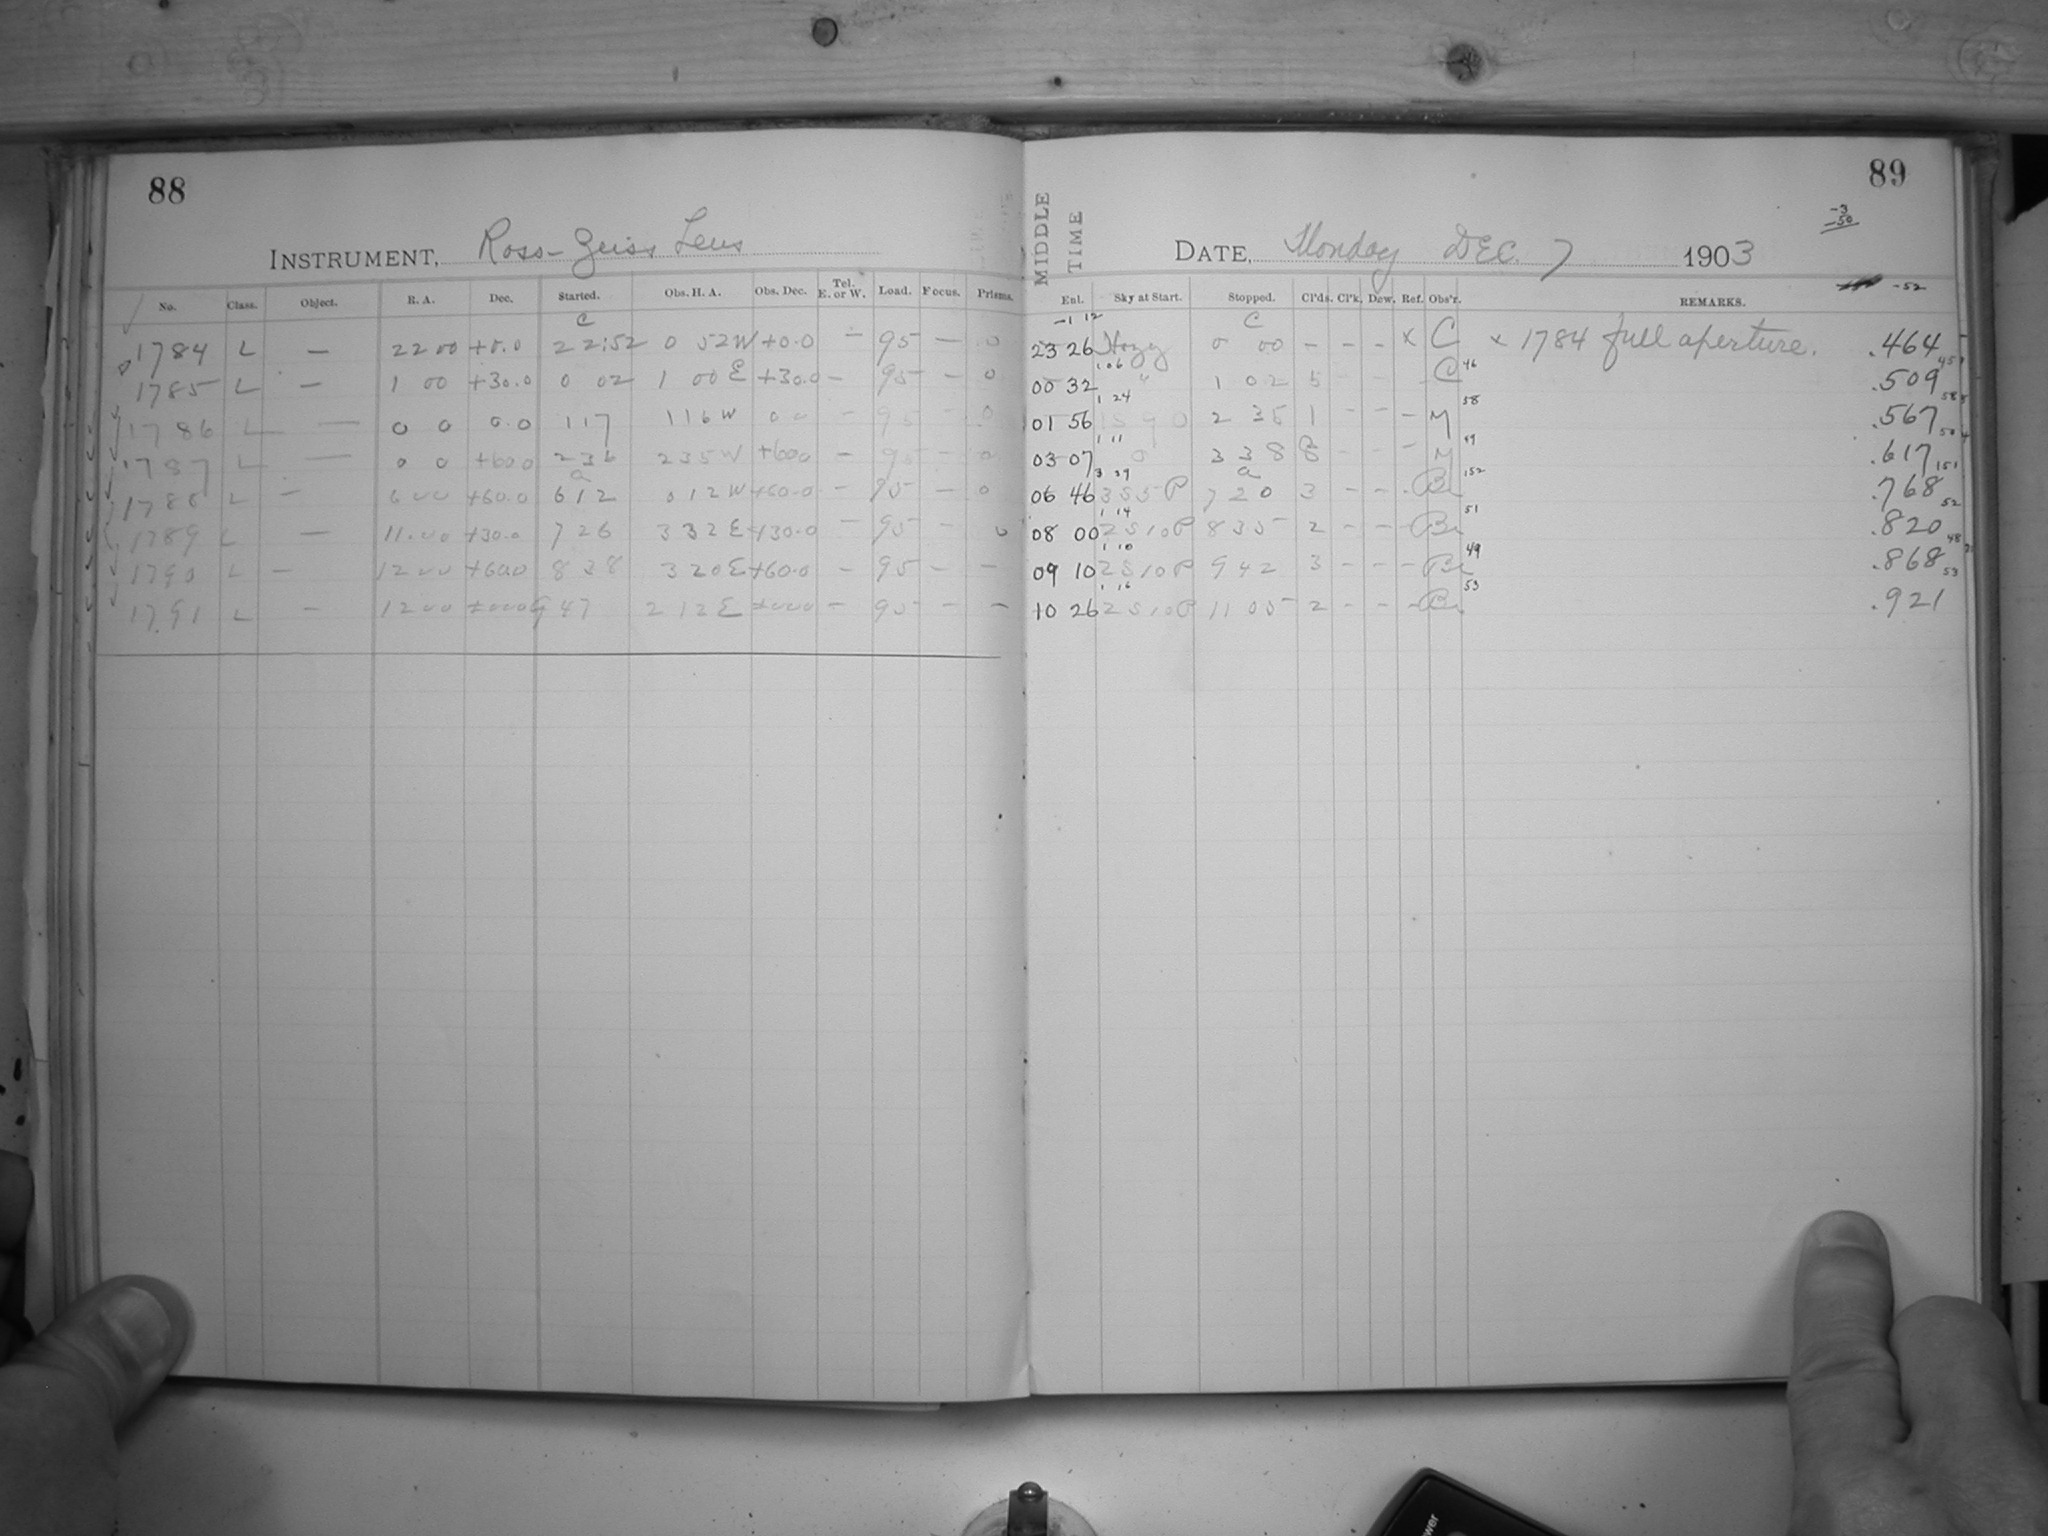 88
INSTRUMENT, Ross-Zeiss Lens
No. Class. Object. R. A. Dec. Started. Obs. H. A. Obs. Dec. Tel. E. or W. Load. Focus. Prisms.
C
1784 L — 22 00 +0.0 22:52 0 52 W +0.0 — 95 — 0
1785 L — 1 00 +30.0 0 02 1 00 E +30.0 — 95 — 0
1786 L — 0 0 0.0 1 17 1 16 W 0 0 — 95 — 0
1787 L — 0 0 +60.0 2 36 2 35 W +60.0 — 95 — 0
a
1788 L — 6 00 +60.0 6 12 0 12 W +60.0 — 95 — 0
1789 L — 11.00 +30.0 7 26 3 32 E +30.0 — 95 — 0
1790 L — 12 00 +60.0 8 38 3 20 E +60.0 — 95 — —
1791 L — 12 00 9 47 2 12 E — 95 — —
89
MIDDLE TIME
-3
-50
DATE, Monday DEC. 7 1903
-52
Enl. Sky at Start. Stopped. Cl'ds. Cl'k. Dew. Ref. Obs'r. REMARKS.
-1 12 C
23 26 Hazy 0 00 - - - x C x 1784 full aperture. .464
1 06 46
00 32 " 1 02 5 - - - C .509
1 24 58
01 56 1 5 9 0 2 35 1 - - - M .567
1 11 49
03 07 0 3 38 8 - - - M .617
3 39 a 152 151
06 46 3 S 5 P 7 20 3 - - - Br .768
1 14 51 52
08 00 2 S 10 P 8 35 2 - - - Br .820
1 10 49 48
09 10 2 S 10 P 9 42 3 - - - Br .868
1 16 53 53
10 26 2 S 10 P 11 05 2 - - - Br .921